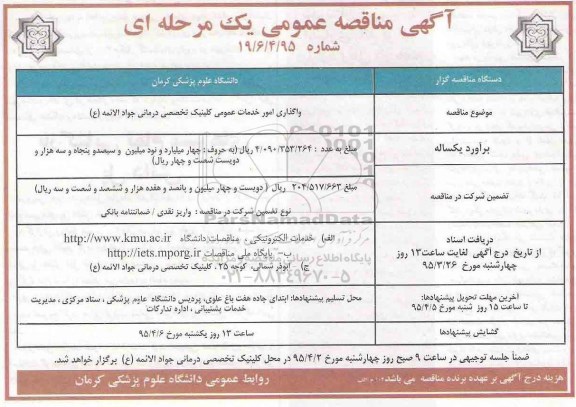 آگهی مناقصه عمومی یک مرحله ای
شماره ۱۹/۶/۴/۹۵
دستگاه مناقصه گزار
دانشگاه علوم پزشکی کرمان
موضوع مناقصه
واگذاری امور خدمات عمومی کلینیک تخصصی درمانی جواد الائمه (ع)
برآورد یکساله
مبلغ به عدد : ۴/۰۹۰/۳۵۳/۲۶۴ ریال (به حروف : چهار میلیارد و نود میلیون و سیصدو پنجاه و سه هزار و
دویست شصت و چهار ریال)
تضمین شرکت در مناقصه
مبلغ ۲۰۴/۵۱۷/۶۶۳ ریال ( دویست و چهار میلیون و پانصد و هفده هزار و ششصد و شصت و سه ریال)
نوع تضمین شرکت در مناقصه : واریز نقدی / ضمانتنامه بانکی
دریافت اسناد
از تاریخ درج آگهی لغایت ساعت۱۳ روز
چهارشنبه مورخ ۹۵/۳/۲۶
الف) خدمات الکترونیکی ، مناقصات دانشگاه http://www.kmu.ac.ir
ب- پایگاه ملی مناقصات http://iets.mporg.ir
ج) ابوذر شمالی، کوچه ۲۵، کلینیک تخصصی درمانی جواد الائمه (ع)
آخرین مهلت تحویل پیشنهادها:
تا ساعت ۱۵ روز شنبه مورخ ۹۵/۴/۵
محل تسلیم پیشنهادها: ابتدای جاده هفت باغ علوی، پردیس دانشگاه علوم پزشکی ، ستاد مرکزی ، مدیریت
خدمات پشتیبانی ، اداره تدارکات
گشایش پیشنهادها
ساعت ۱۳ روز یکشنبه مورخ ۹۵/۴/۶
ضمناً جلسه توجیهی در ساعت ۹ صبح روز چهارشنبه مورخ ۹۵/۴/۲ در محل کلینیک تخصصی درمانی جواد الائمه (ع) برگزار خواهد شد.
هزینه درج آگهی بر عهده برنده مناقصه می باشد
روابط عمومی دانشگاه علوم پزشکی کرمان
ParsNamadData
۰۲۱-۸۸۳۴۹۶۷۰-۵